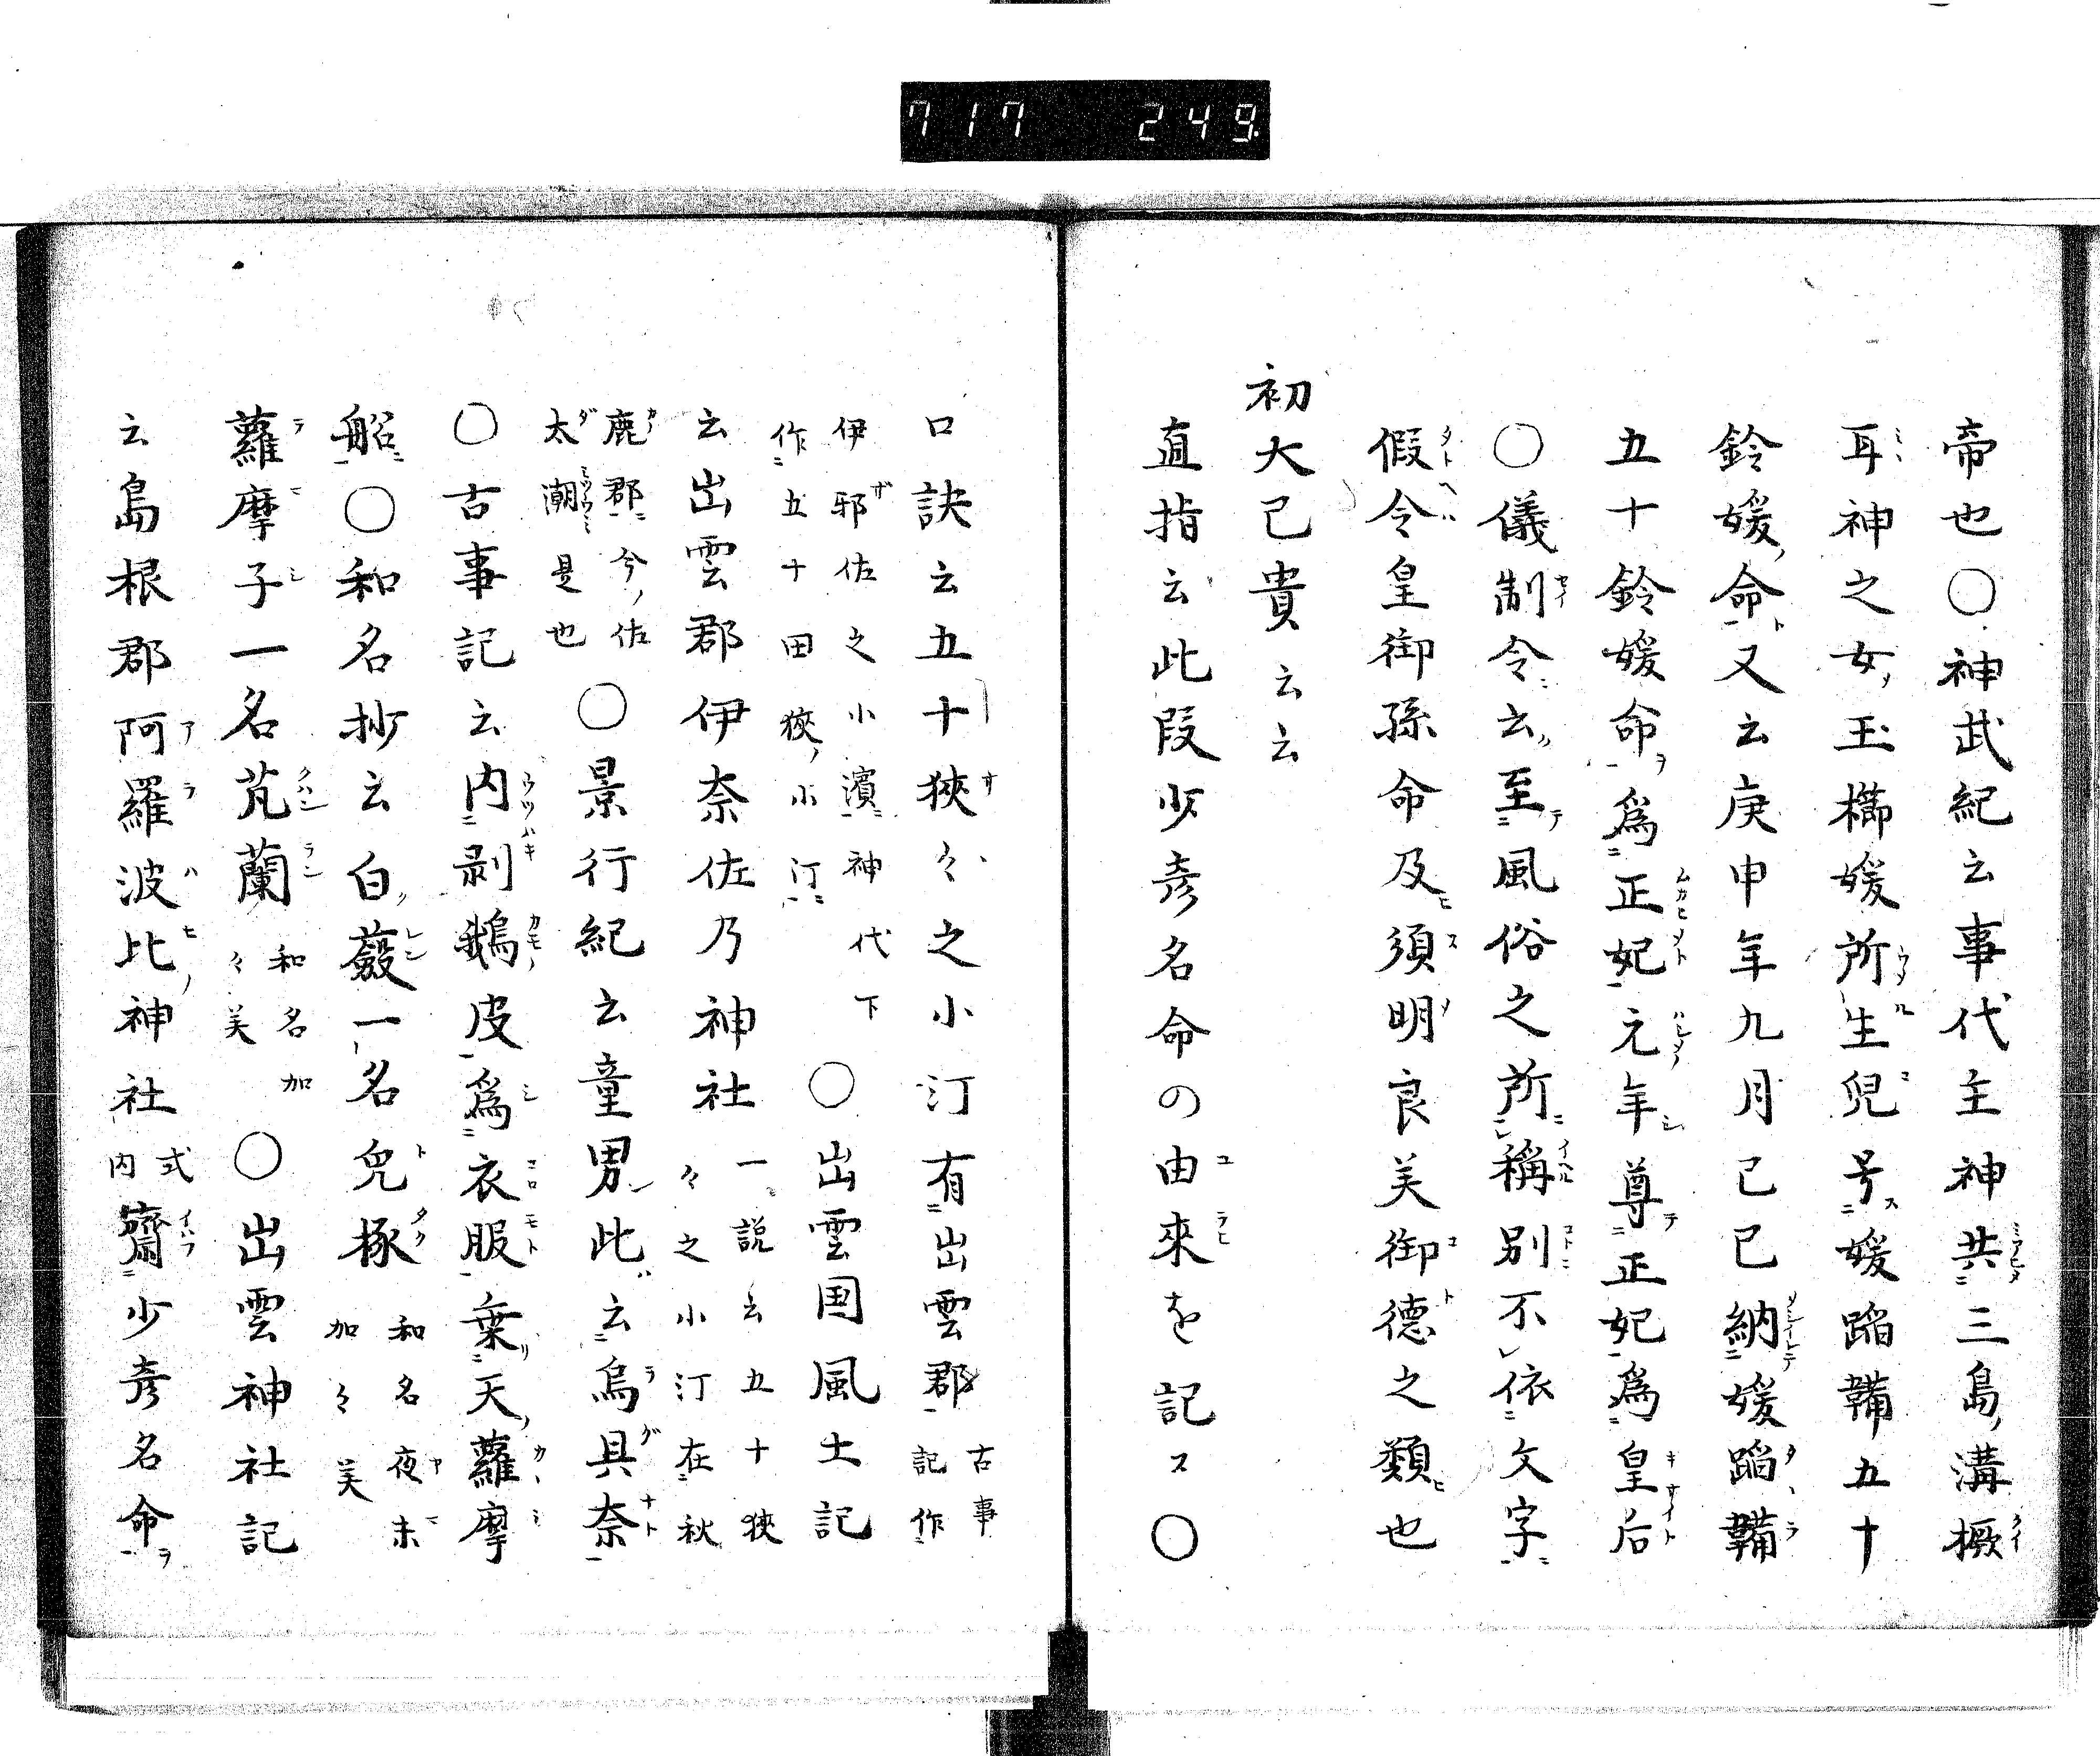 717 249
帝也〇神武紀云事代主神共三島溝橛
耳神之女玉櫛媛所生兒号媛蹈鞴五十
鈴媛命又云庚申年九月己巳納媛蹈鞴
五十鈴媛命爲正妃元年尊正妃爲皇后
〇儀制令云至風俗之所稱別不依文字
假令皇御孫命及須明良美御德之類也
初大己貴云云
直指云此段少彦名命の由來を記ス〇
口訣云五十狹々之小汀有出雲郡古事記作
伊邪佐之小濱神代下作五十田狹小汀〇出雲国風土記
云出雲郡伊奈佐乃神社一説云五十狹々之小汀在秋
鹿郡今佐太潮是也〇景行紀云童男此云烏具奈
〇古事記云内剥鵝皮爲衣服乗天蘿摩
船〇和名抄云白蘞一名兎核和名夜末加々美
蘿摩子一名芄蘭和名加々美〇出雲神社記
云島根郡阿羅波比神社式内齋少彦名命